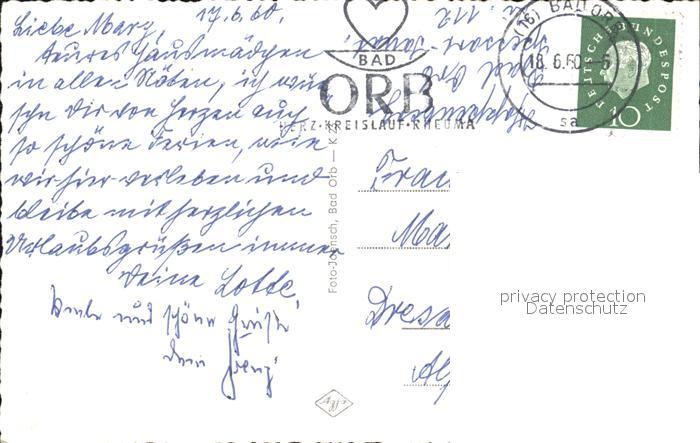 17.6.60.
Liebe Mary,
teures Hausmädchen
in allen Nöten, ich wün-
sche dir von Herzen auch
so schöne Ferien, wie
wir hier verleben und
bleibe mit herzlichen
Urlaubsgrüßen immer
Deine Lotte,
und schöne Grüße
dein
BAD
ORB
HERZ·KREISLAUF·RHEUMA
(16) BAD ORB
18.6.60
sa
DEUTSCHE BUNDESPOST
10
Foto-Jaensch, Bad Orb — K
Agfa
Frau
Ma
Dresd
privacy protection
Datenschutz